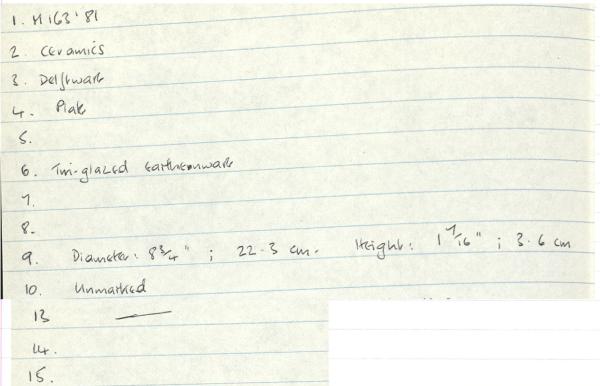 1. H163'81
2. Ceramics
3. Delftware
4. Plate
5.
6. Tin-glazed earthenware
7.
8.
9. Diameter: 8 3/4" ; 22.3 cm. Height: 1 7/16" ; 3.6 cm
10. Unmarked
13 —
14.
15.